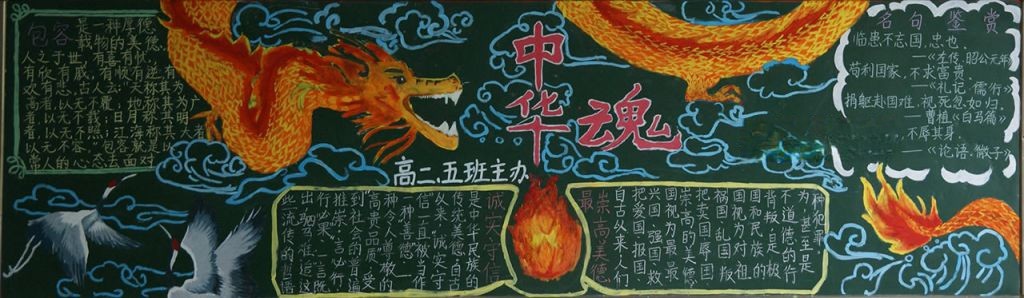 包容
是一种厚德
载物的美德.
人之于世,有喜有忧,
有欣有戚,有顺有逆,有
欢有悲.古人云:“天称其
高者,以无不覆;地称其广
者,以无不载;日月称其明
者,以无不照;江海称其大
者,以无不容.”包容就是以
常人的心态去面对
中华魂
高二、五班主办
名句鉴赏
临患不忘国,忠也.
——《左传·昭公元年》
苟利国家,不求富贵.
——《礼记·儒行》
捐躯赴国难,视死忽如归.
——曹植《白马篇》
不辱其身.
——《论语·微子》
诚实守信
是中华民族的
传统美德.自古
以来,诚实守
信一直被习作
一种善德
种令人尊敬的
高贵品质,受
到社会的普遍
推崇.言必行
行必果,一言既
出驷马难追这
些流传的
崇高美德
最
自古以来人们
把爱国、报国、
兴国、强国、救
国视为最
崇高的美德
把卖国、辱国
祸国、乱国、叛
国视为对祖
国和民族的
背叛,自是极
不道德的行
为,甚至是
种犯罪